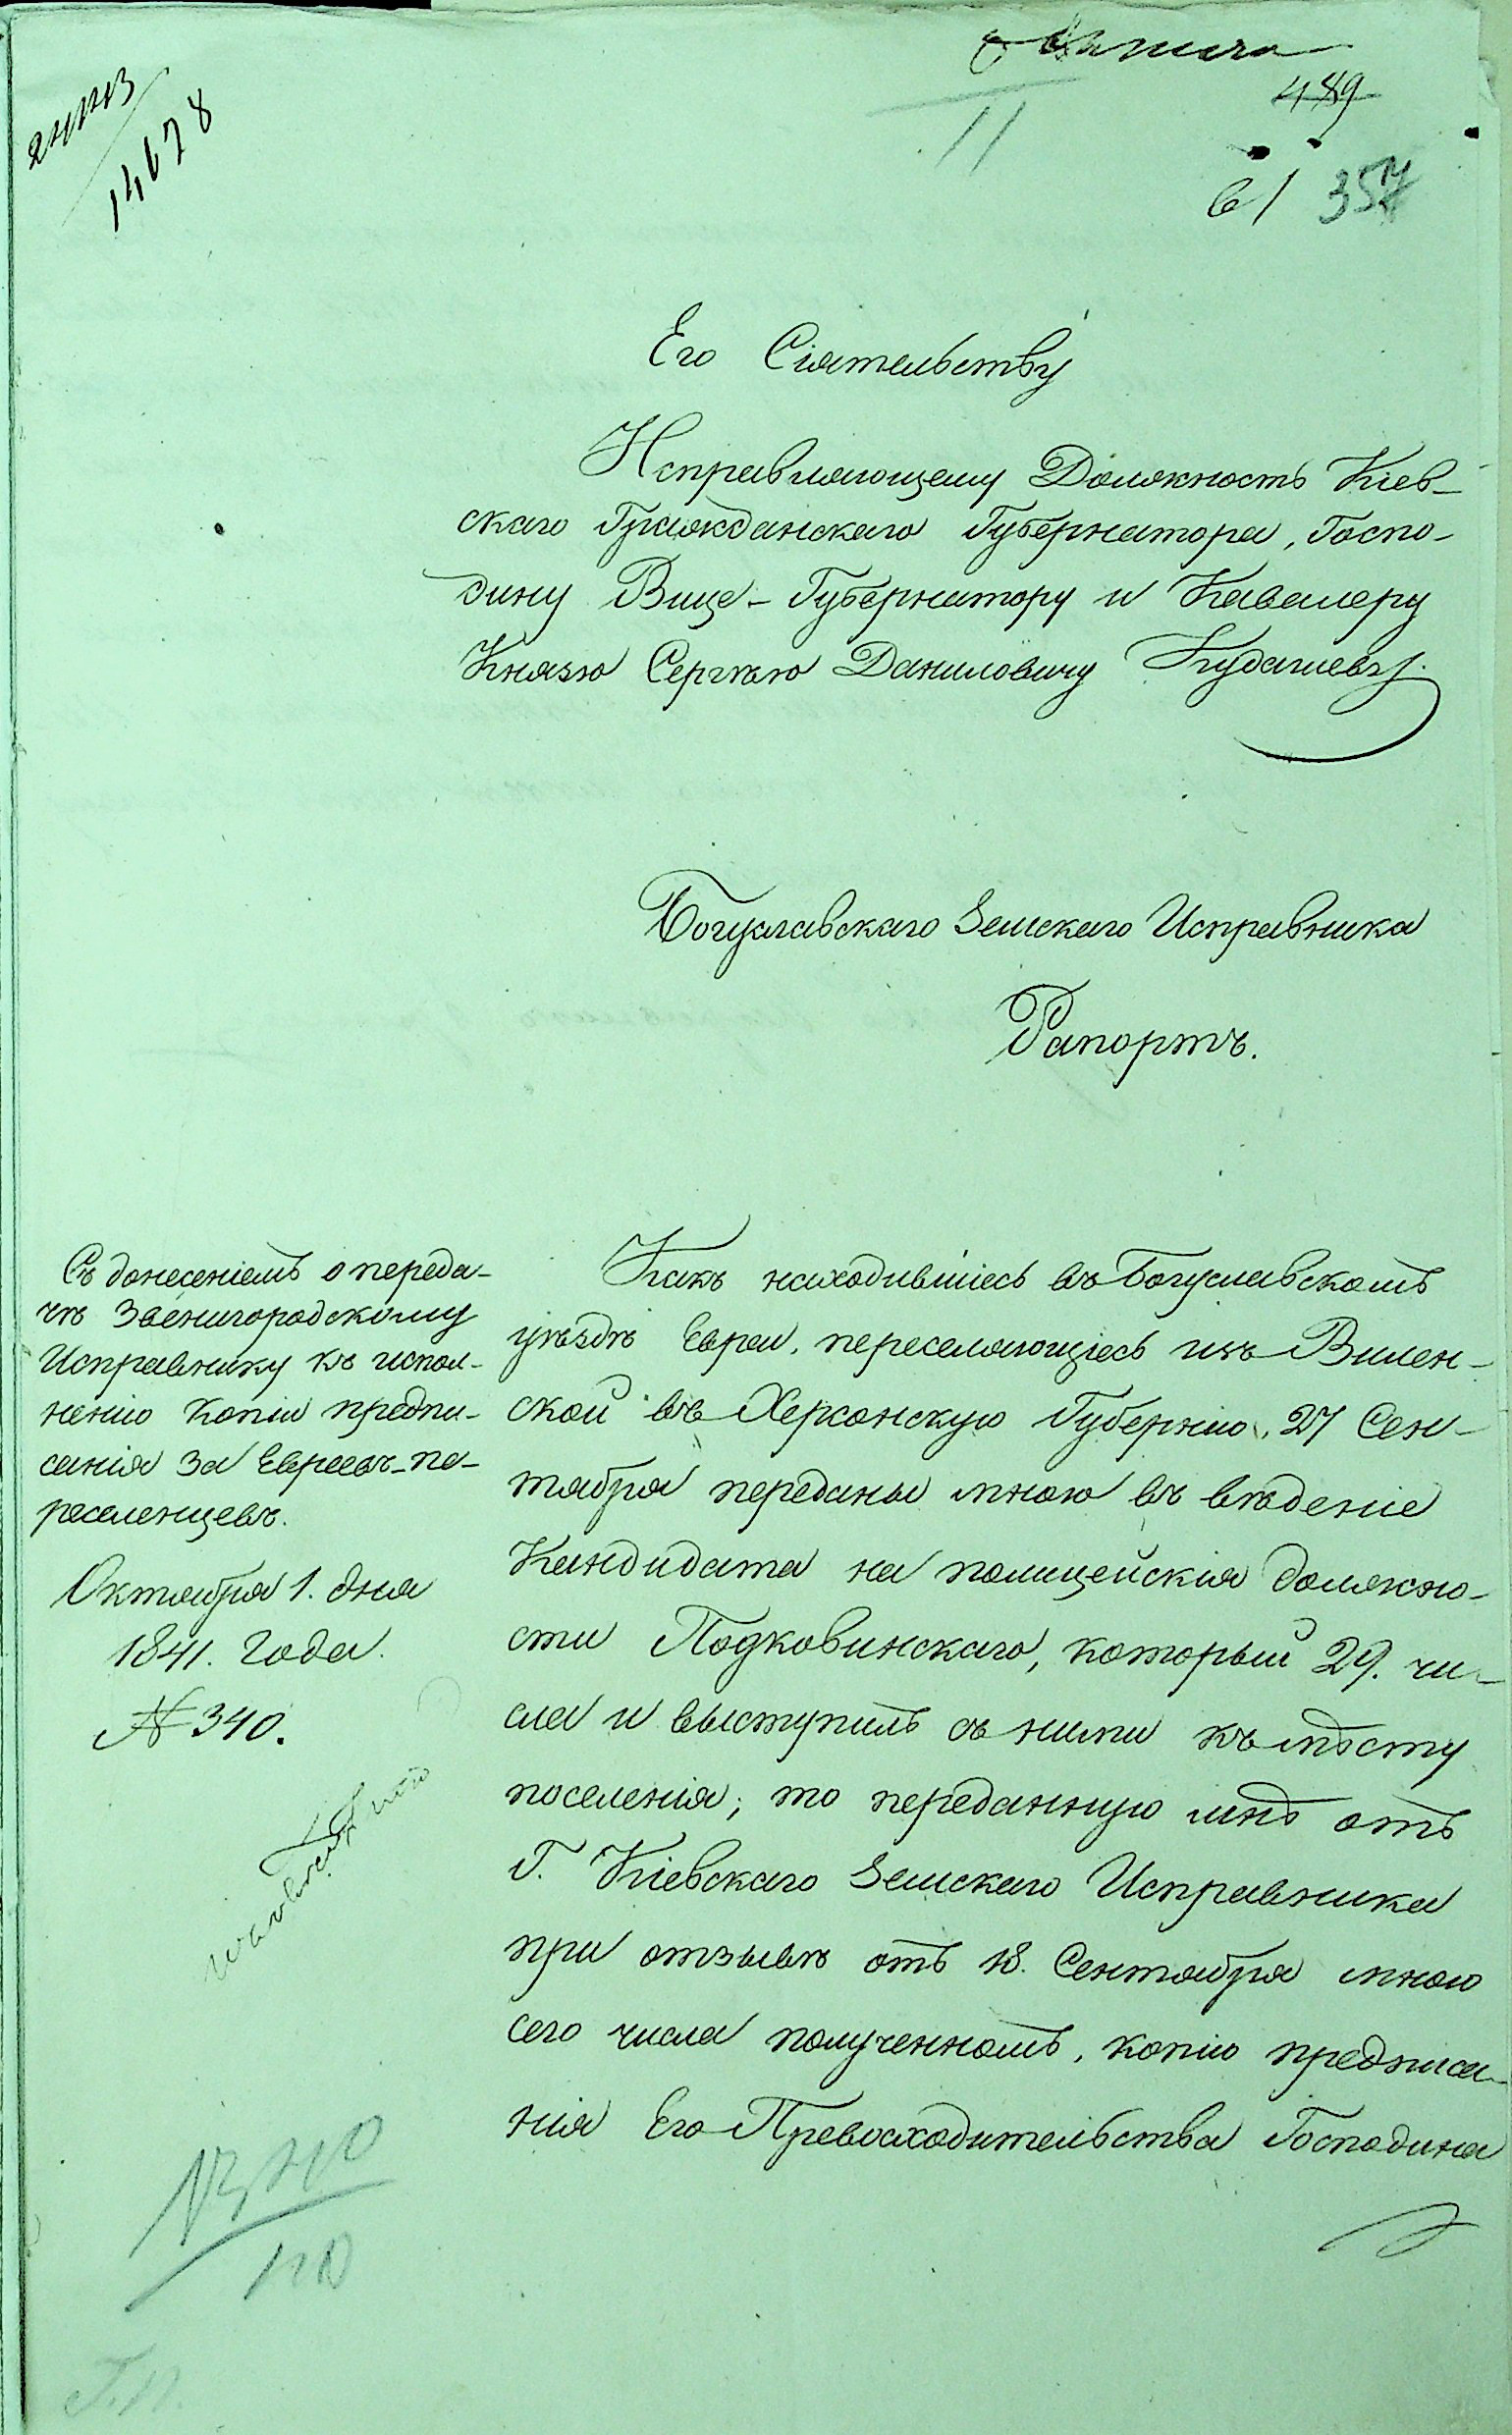 14678
489
61 357
11
Его Сіятельству
Исправляющему Должность Кіев-
скаго Гражданскаго Губернатора, Госпо-
дину Вице-Губернатору и Кавалеру
Князю Сергѣю Даниловичу Кудашеву.
Богуславскаго Земскаго Исправника
Рапортъ.
Съ донесеніемъ о переда-
чѣ Звенигородскому
Исправнику къ испол-
ненію копіи предпи-
санія за Евреевъ-пе-
реселенцевъ.
Октября 1. дня
1841. года.
№ 340.
Какъ находившіесь въ Богуславскомъ
уѣздѣ Евреи, переселяющіесь изъ Вилен-
ской въ Херсонскую Губернію, 27 Сен-
тября переданы мною въ вѣденіе
Кандидата на полицейскія должно-
сти Подковинскаго, который 29. чи-
сла и выступилъ съ ними къ мѣсту
поселенія; то переданную мнѣ отъ
Г. Кіевскаго Земскаго Исправника
при отзывѣ отъ 18. Сентября мною
сего числа полученномъ, копію предписа-
нія Его Превосходительства Господина